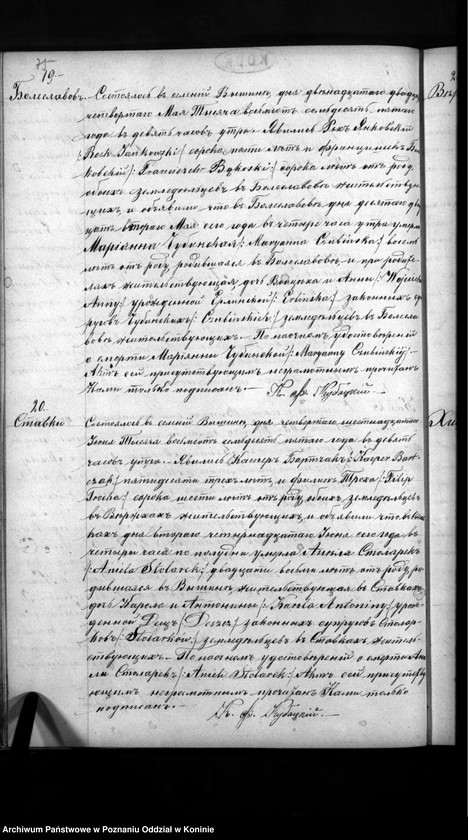 19.
Болеславовъ. Состоялось въ селеніи Вышинѣ, дня двѣнадцатаго двадцать
четвертаго Мая Тысяча восемьсотъ семьдесятъ пятаго
года въ девять часовъ утра. Явились Рохъ Янковскій
/: Roch Jankowski :/ сорока пяти лѣтъ и Францишекъ
/: Franciszek :/ сорока лѣтъ отъ роду,
обоихъ земледѣльцевъ въ Болеславовѣ жительствую
щихъ, и объявили что въ Болеславовѣ дня десятаго два
цать втораго Мая сего года въ четыре часа утра умерла
Маріянна Чубинская /: Maryanna Czubińska :/ восемь
лѣтъ отъ роду, родившаяся въ Болеславовѣ и при родите
ляхъ жительствующая, дочь Войцеха и Анны /: Wojciecha
Anny :/ урожденной законныхъ су
руговъ Чубинскихъ /: Czubińskich :/ земледѣльцевъ въ Болесла
вовѣ жительствующихъ. По настоящемъ удостовѣреніи
о смерти Маріянны Чубинской /: Maryanny Czubińskiej :/
Актъ сей присутствующимъ неграмотнымъ прочитанъ
Нами только подписанъ.
20.
Ставки Состоялось въ селеніи Вышинѣ, дня четвертаго шестнадцатаго
Іюня Тысяча восемьсотъ семьдесятъ пятаго года въ девять
часовъ утра. Явились Касперъ Бартчакъ /: Kasper Bart
czak :/ пятидесяти трехъ лѣтъ, и Филипъ Троха /: Filip
Trocha :/ сорока шести лѣтъ отъ роду, обоихъ земледѣльцевъ
въ жительствующихъ, и объявили что въ Став
кахъ дня втораго четырнадцатаго Іюня сего года въ
четыре часа по полудни умерла Аніеля Столарекъ
/: Aniela Stolarek :/ двадцати восьми лѣтъ отъ роду, ро
дившаяся въ Вышинѣ, жительствующая въ Ставкахъ
дочь Кароля и Антонины /: Karola Antoniny :/ урож
денной законныхъ супруговъ Столар
ковъ /: Stolarków :/ земледѣльцевъ въ Ставкахъ житель
ствующихъ. По настоящемъ удостовѣреніи о смерти Ание
ли Столарекъ /: Anieli Stolarek :/ Актъ сей присутству
ющимъ неграмотнымъ прочитанъ Нами только
подписанъ.
Archiwum Państwowe w Poznaniu Oddział w Koninie